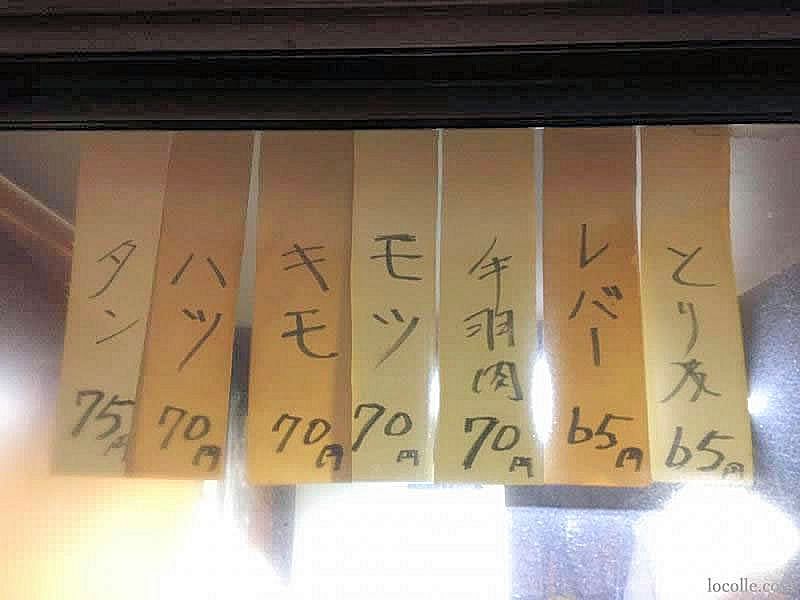 とり皮
65円
レバー
65円
手羽肉
70円
モツ
70円
キモ
70円
ハツ
70円
タン
75円
locolle.com